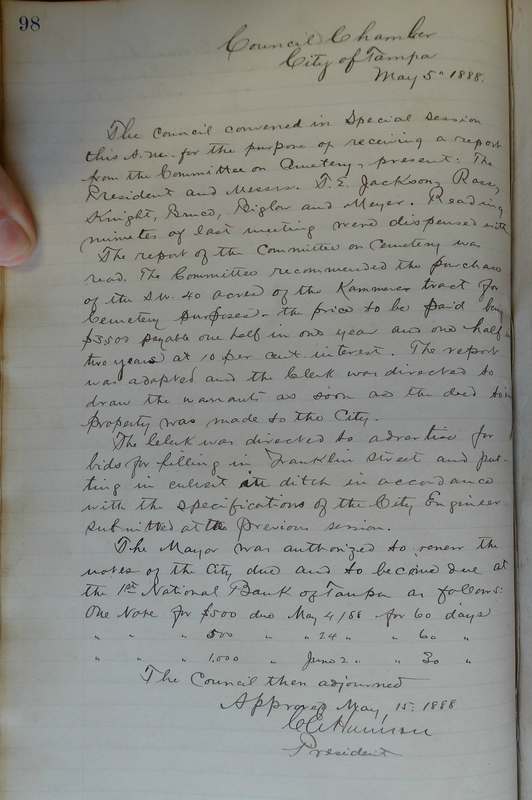 98
Council Chamber
City of Tampa
May 5" 1888.
The council convened in Special Session
this A.M. for the purpose of receiving a report
from the Committee on Cemetery, present: The
President and Messrs. T. E. Jackson, Race,
Knight, Bruce, Biglow and Meyer. Reading
minutes of last meeting were dispensed with
The report of the Committee on Cemetery was
read. The Committee recommended the purchase
of the S.W. 40 acres of the Kammerer tract for
Cemetery purposes - the price to be paid being
$3,500 payable one half in one year and one half in
two years at 10 per cent interest. The report
was adopted and the Clerk was directed to
draw the warrants as soon as the deed to
property was made to the City.
The Clerk was directed to advertise for
bids for filling in Franklin Street and put-
ting in culvert ditch in accordance
with the specifications of the City Engineer
submitted at the previous session.
The Mayor was authorized to renew the
notes of the City due and to become due at
the 1st National Bank of Tampa as follows:
One Note for $500 due May 4/88 for 60 days
" " " 500 " " 24 " " 60 "
" " " 1,000 " June 2 " " 30 "
The Council then adjourned
Approved May 15. 1888
C C Harrison
President